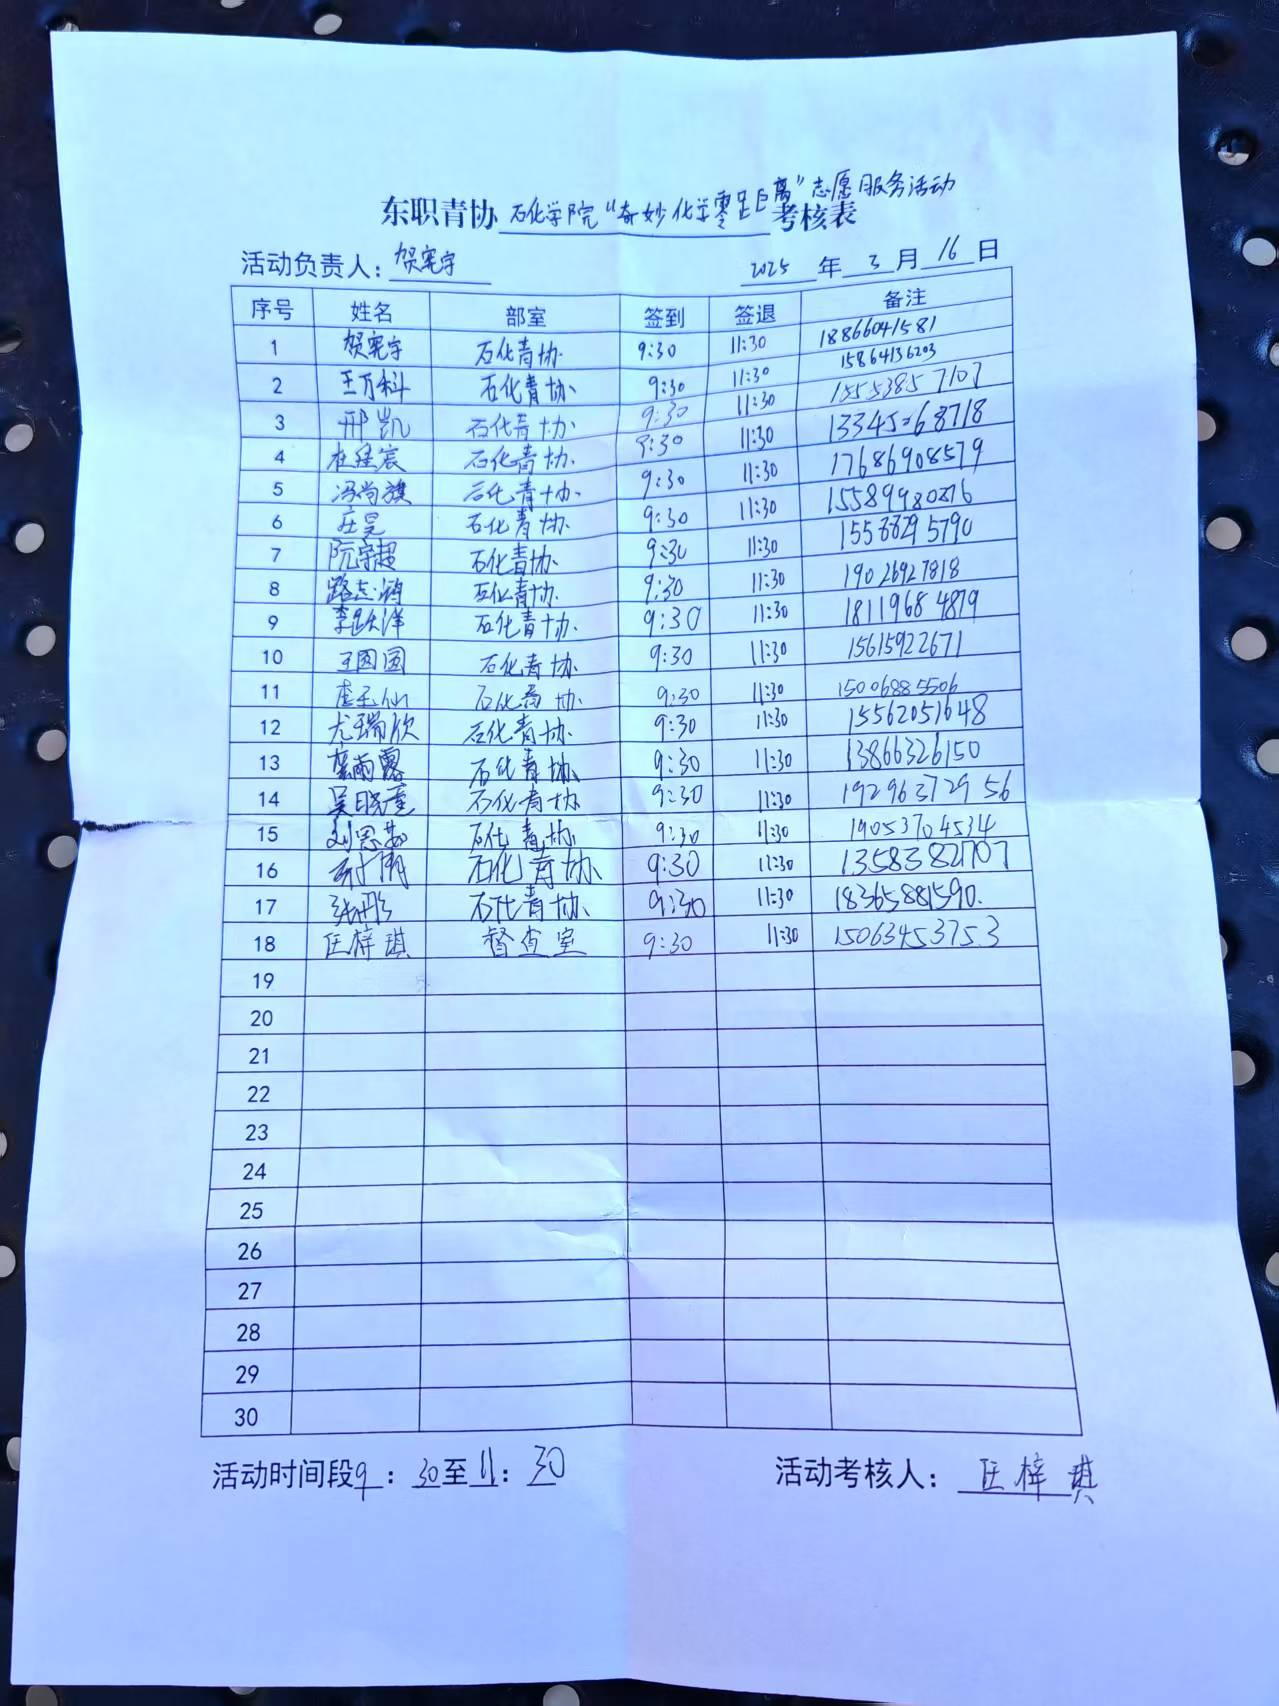 东职青协石化学院“奇妙化学零距离”志愿服务活动考核表
活动负责人：贺宪宇 2025年3月16日
序号 姓名 部室 签到 签退 备注
1 贺宪宇 石化青协 9:30 11:30 18866041581
2 王万科 石化青协 9:30 11:30 15864136203
3 邢凯 石化青协 9:30 11:30 15553857107
4 杜经宸 石化青协 9:30 11:30 13345268718
5 冯尚旗 石化青协 9:30 11:30 17686908579
6 庄昊 石化青协 9:30 11:30 15589980876
7 阮宗超 石化青协 9:30 11:30 15588295790
8 路志鸿 石化青协 9:30 11:30 19026927818
9 李跃洋 石化青协 9:30 11:30 18119684879
10 王圆圆 石化青协 9:30 11:30 15615922671
11 石化青协 9:30 11:30 15006885506
12 尤瑞欣 石化青协 9:30 11:30 15562051648
13 雨露 石化青协 9:30 11:30 13866326150
14 吴晓 石化青协 9:30 11:30 19296372956
15 刘思 石化青协 9:30 11:30 19053704534
16 石化青协 9:30 11:30 13583827707
17 张彤 石化青协 9:30 11:30 18365881590.
18 匡梓琪 督查室 9:30 11:30 15063453753
19
20
21
22
23
24
25
26
27
28
29
30
活动时间段9：30至11：30 活动考核人：匡梓琪